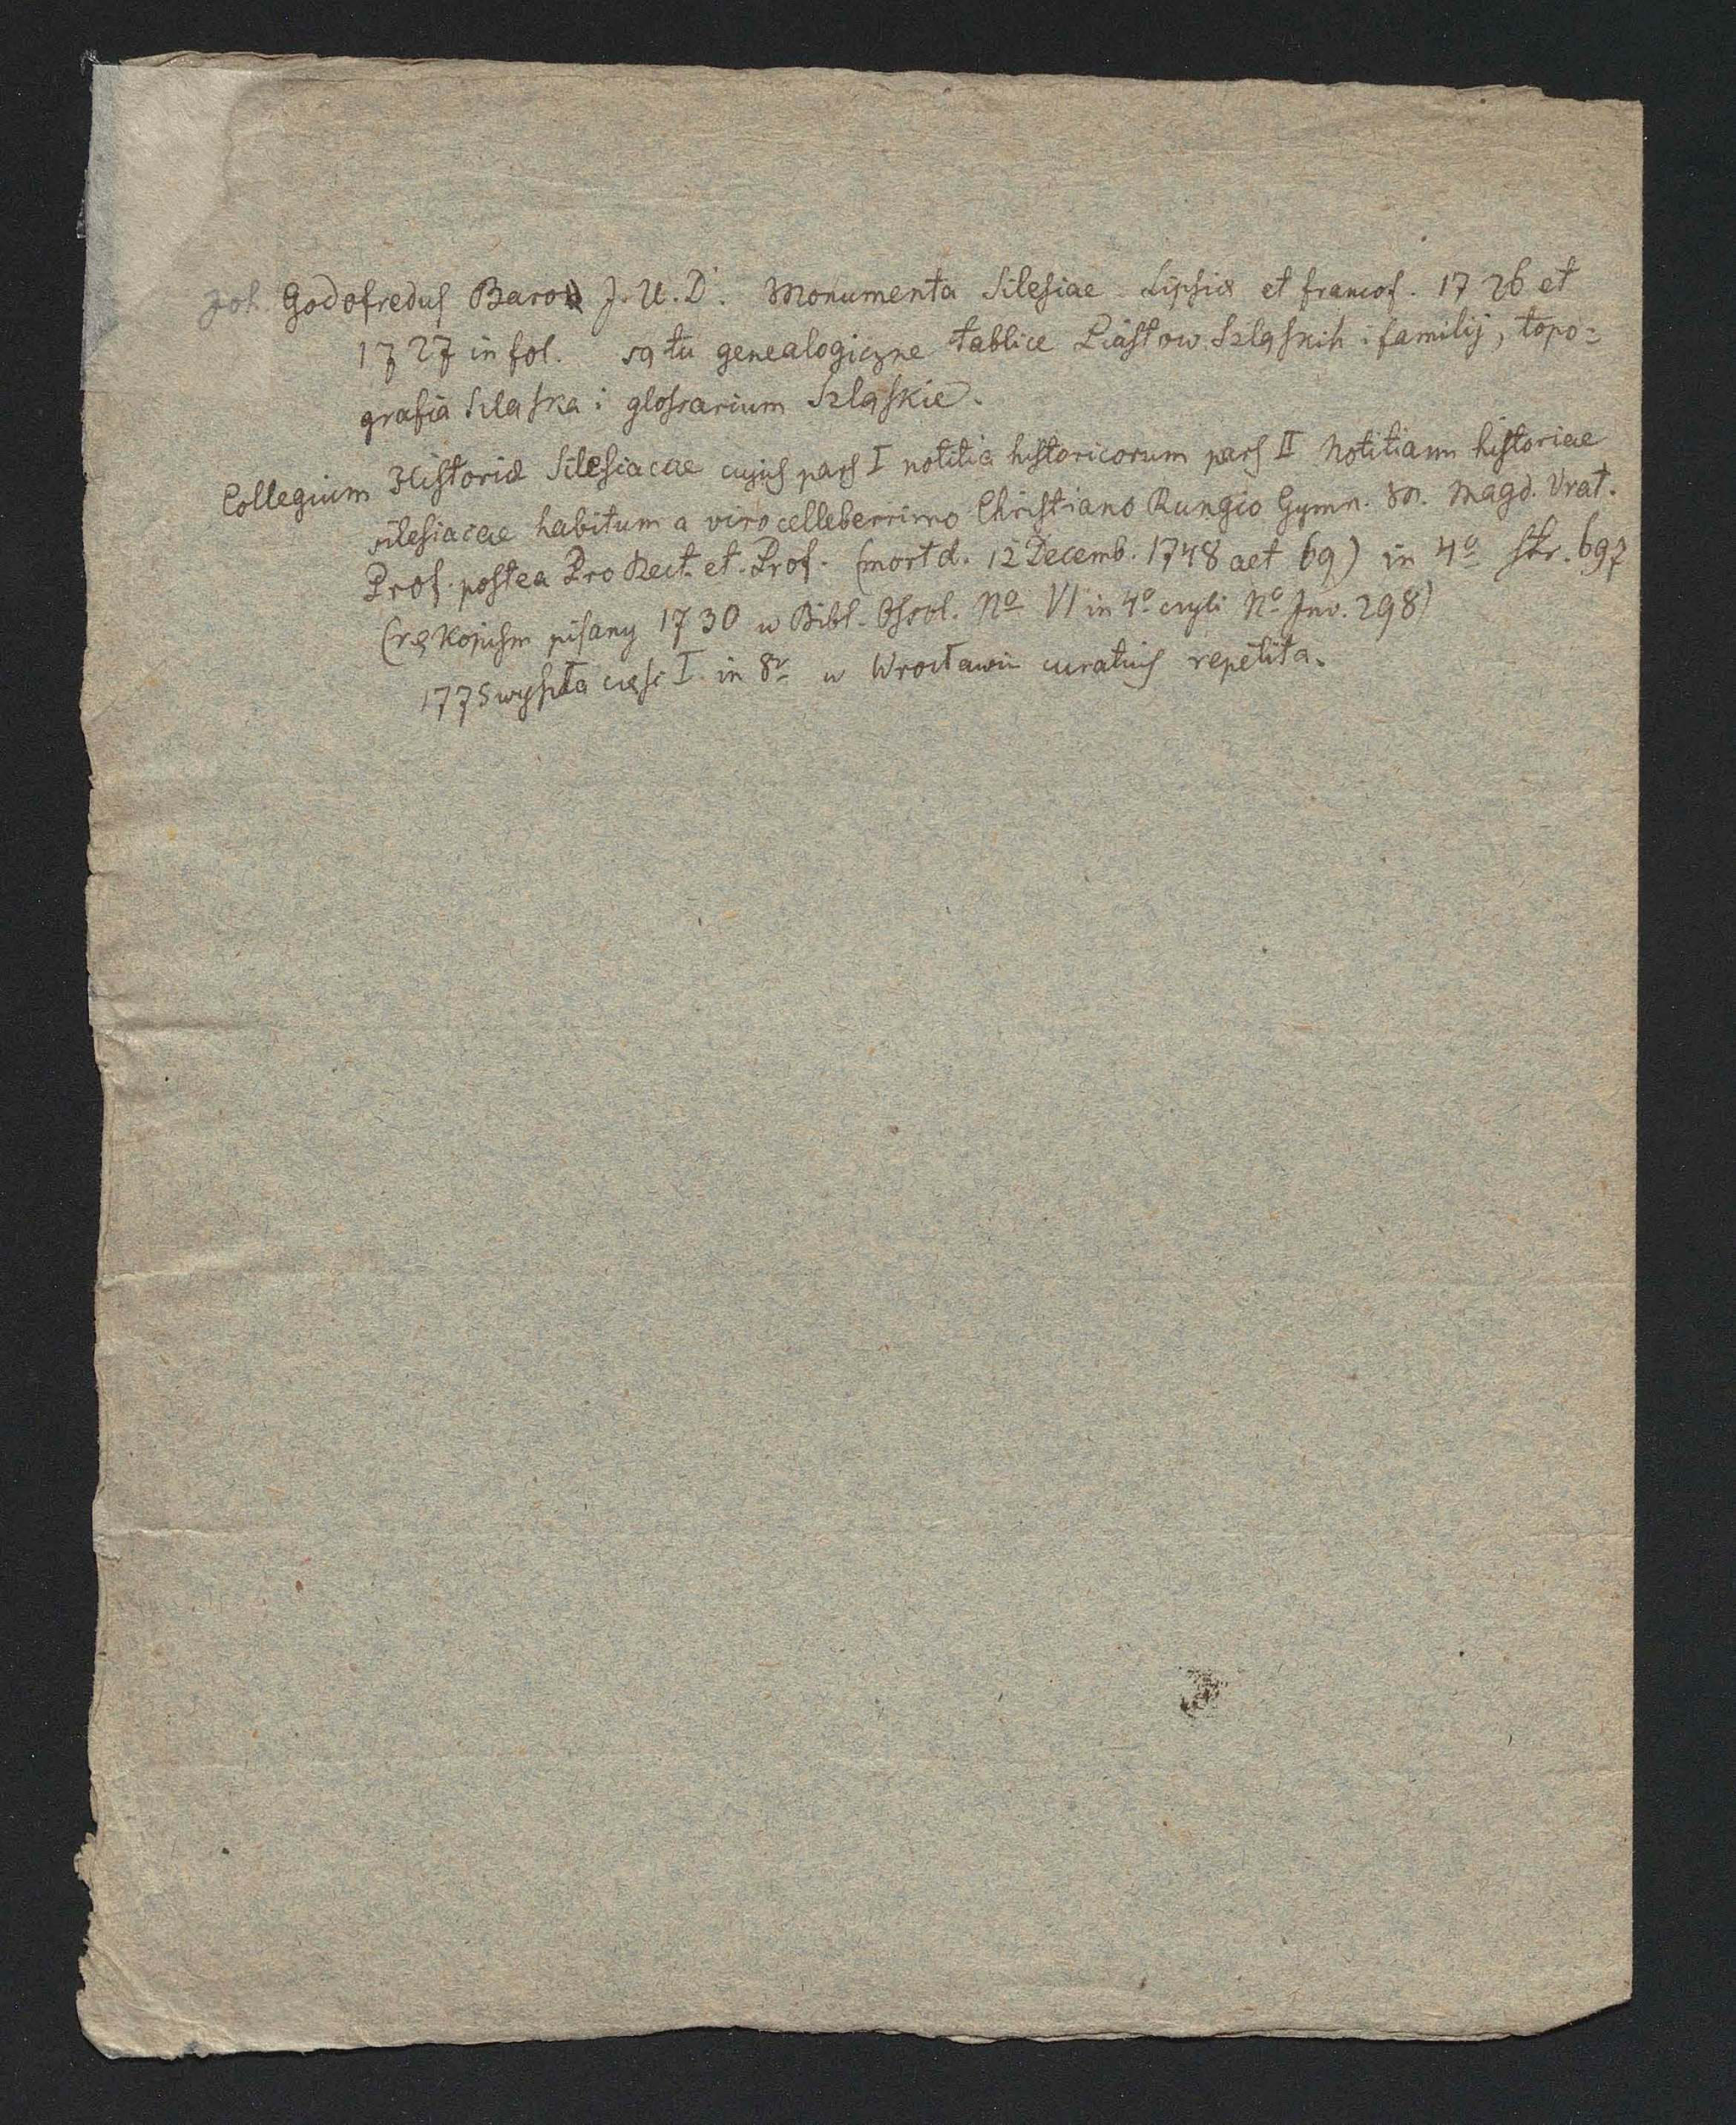 Joh. Godofredus Baro J. U. D. Monumenta Silesiae Lipsia et francof. 1726 et
1727 in fol. są tu genealogiczne tablice Piastow Szląskih i familij, topo=
grafia Szląska i glossarium Szląskie.
Collegium Historiæ Silesiacae cujus pars I notitia historicorum pars II Notitiam historiae
silesiacae habitum a viro celleberrimo Christiano Rungio Gymn. M. Magd. Vrat.
Prof. postea Pro Rect. et. Prof. (mort d. 12 Decemb. 1748 aet 69) in 4º str. 697
(rękopism pisany 1730 w Bibl. Ossol. Nº VI in 4º czyli Nº Inv. 298)
1775 wyszła częsc I. in 8º w Wrocławiu curatius repetita.